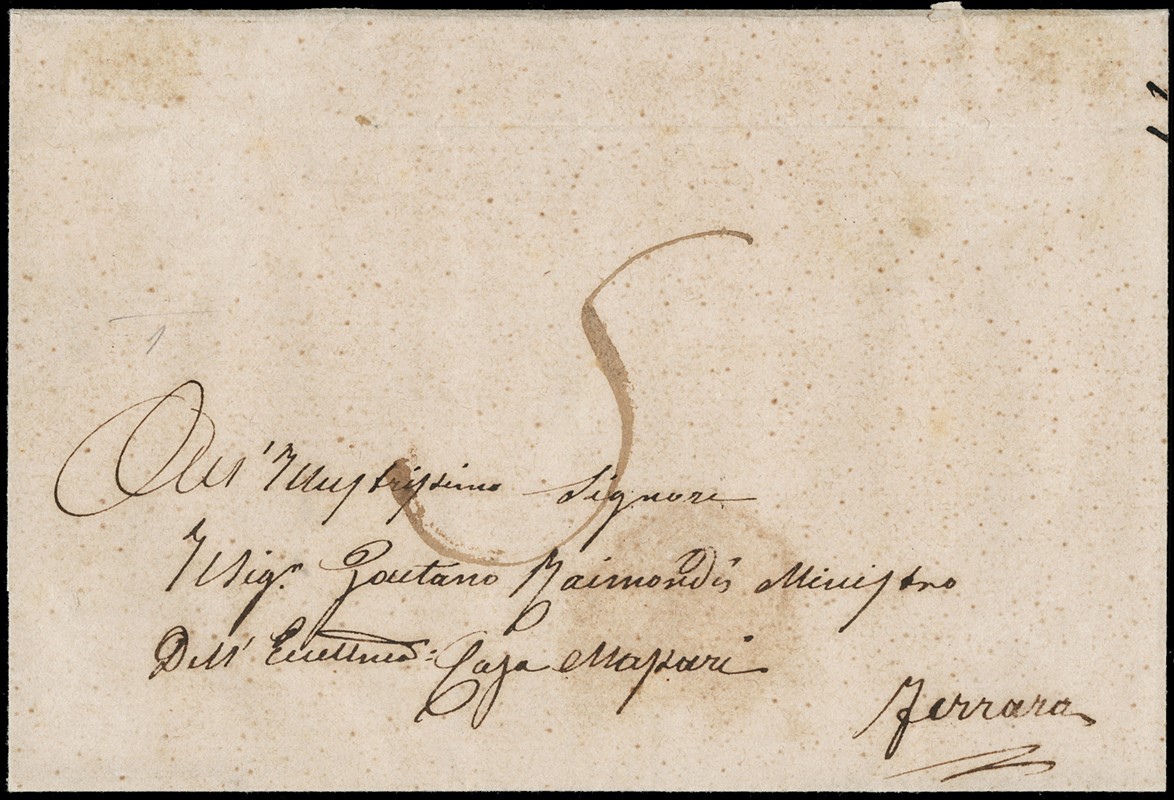 1
5
All' Illustrissimo Signore
Il Sig.r Gaetano Raimondi Ministro
Dell' Eccellma: Casa Massari
Ferrara